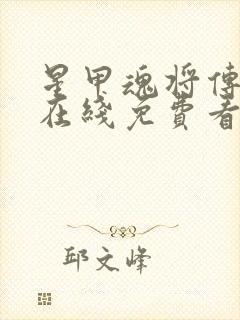 星甲魂将傳
在綫免費看
邱文峰